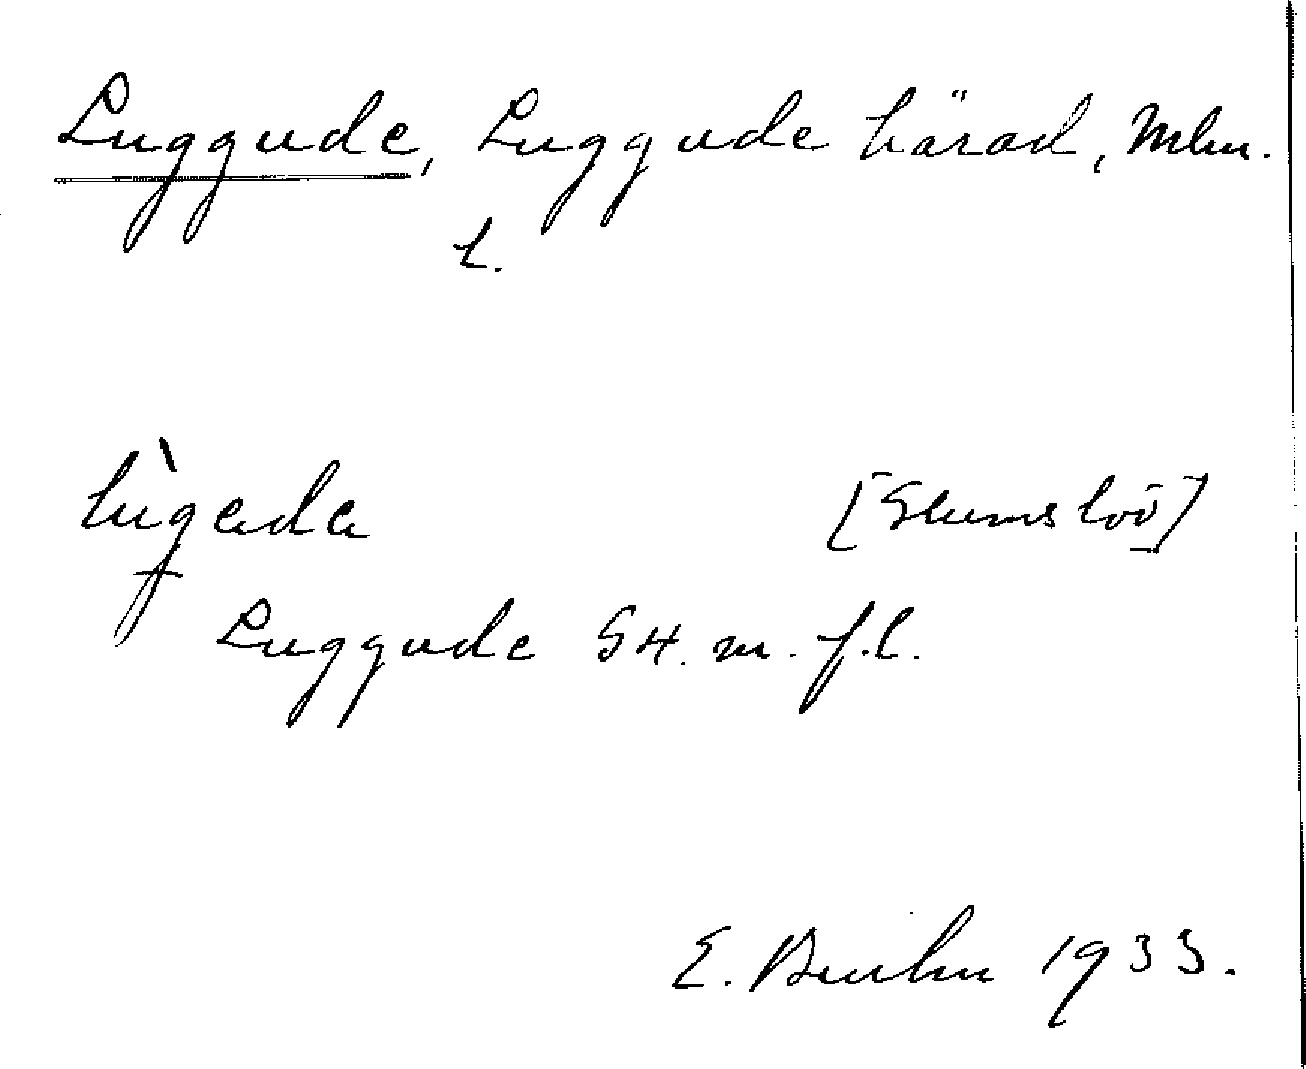 Luggude, Luggude härad, Mlm.
L.
lùgada
[Glumslöv]
Luggude S4. m. fl.
E. Bruhn 1933.